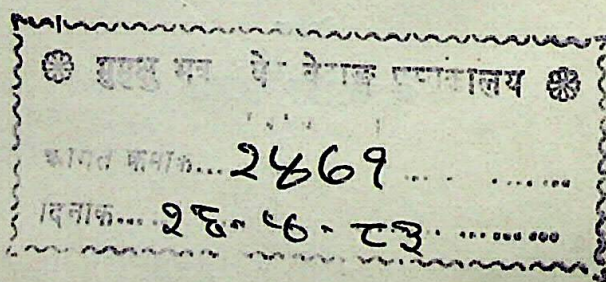 मुमुक्षु भवन वेद वेदाङ्ग पुस्तकालय
आगत क्रमाक... 2469 .... . ......
दिनांक...